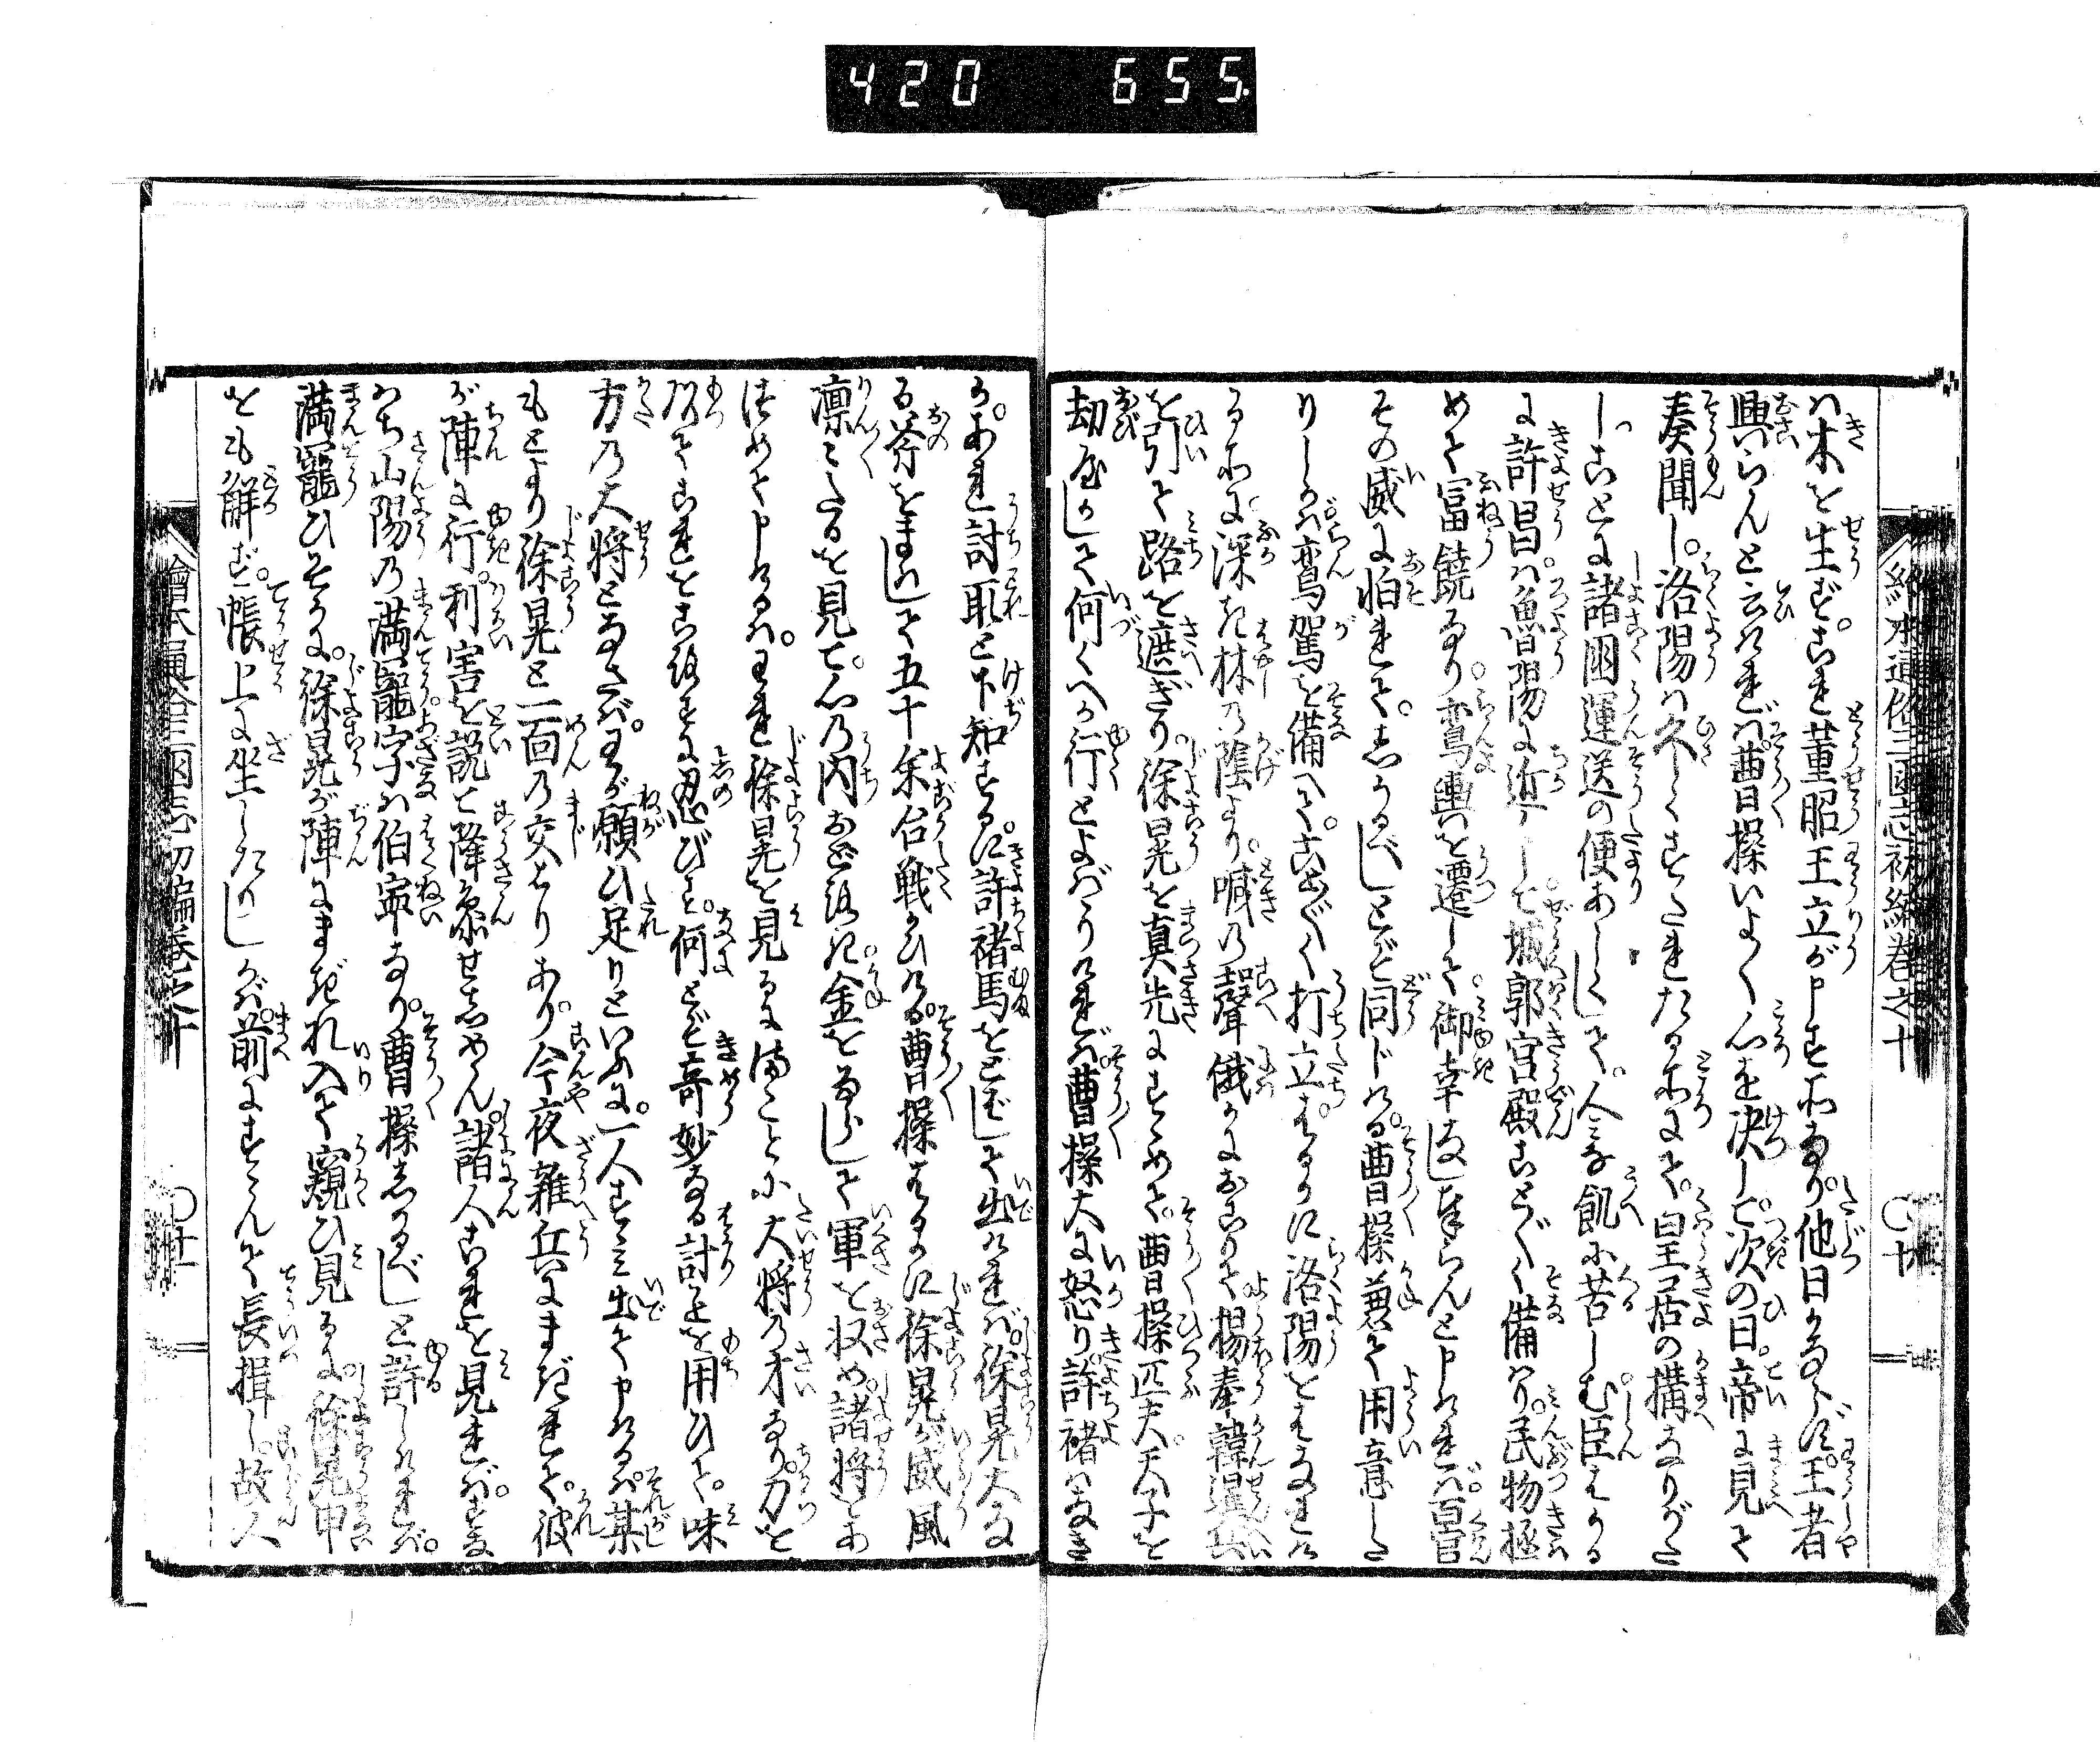 420 655
繪本通俗三國志初編卷之十
〇十
ハ木を生ず。これ董昭王立が申す所なり。他日かならず王者
興らんと云ければ。曹操いよ〱心を決して。次の日。帝に見て
奏聞し。洛陽ハ久しくすたれたる所にて。皇居の構なりがた
し。ことに諸国運送の便あしくして。人多飢に苦しむ。臣はかる
に許昌ハ魯陽に近くして。城郭宮殿こと〲く備ハり。民物極
めて富饒なり。鸞輿を遷して。御幸なし奉らんと申ければ。百官
その威に怕れて。志かるべしとぞ同じける。曹操兼て用意した
りしかバ。鸞駕を備へて。こと〲く打立。はるかに洛陽をはなれけ
る所に。深き林の陰より。喊の聲俄かにおこりて。楊奉韓暹兵
を引て路を遮ぎり。徐晃を真先にすゝめて。曹操匹夫。天子を
劫かして何くへか行とよばゝりければ。曹操大に怒り。許褚ハなき
か。あれ討取と下知するに。許褚馬をとばして出ければ。徐晃大な
る斧をまはして。五十余合戦かひける。曹操はるかに徐晃が威風
凛々たるを見て。心の内おどろき。金をならして軍を収め。諸将をあ
つめて申けるハ。われ徐晃を見るにまことに大将の才なり。力を
以てこれをころすに忍びず。何とぞ奇妙なる計を用ひて。味
方の大将となさバ。わが願ひ足りといふに。一人すゝみ出て申けるハ。某
もとより徐晃と一面の交はりあり。今夜雑兵にまぎれて。彼
が陣に行。利害を説て降参せ志めん。諸人これを見れば。すな
はち山陽の満寵字ハ伯寧なり。曹操志かるべしと許しければ。
満寵ひそかに。徐晃が陣にまぎれ入て窺ひ見るに。徐晃甲
をも解ず。帳上に坐したりしかば。前にすゝんで長揖し。故人
繪本通俗三國志初編卷之十
〇十一